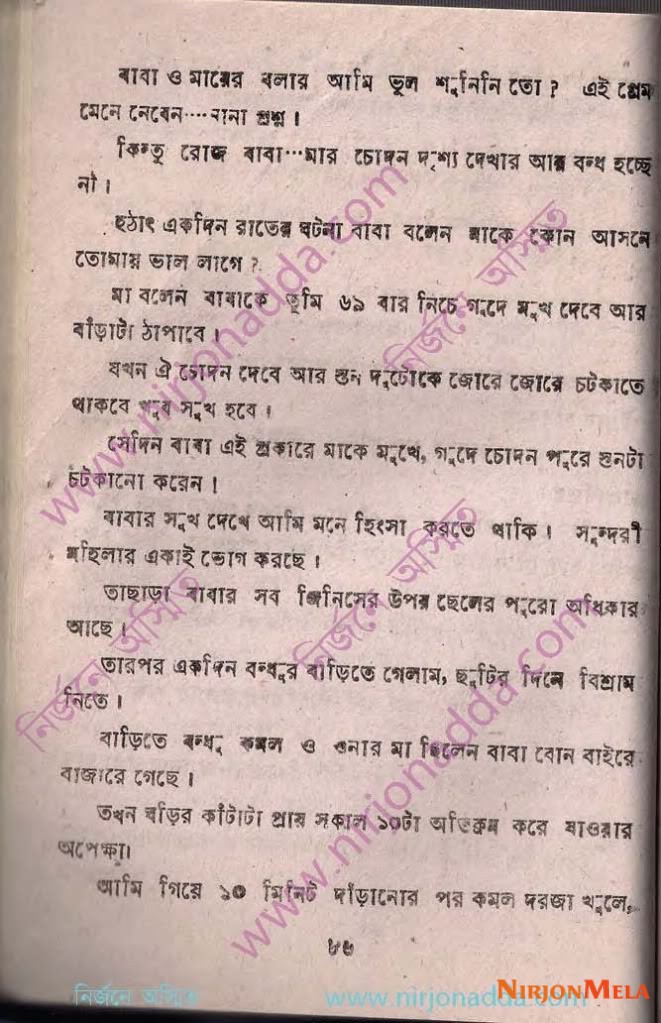 বাবা ও মায়ের বলার আমি ভুল শুনিনি তো? এই প্রেম
মেনে নেবেন····নানা প্রশ্ন।
কিন্তু রোজ বাবা···মার চোদন দৃশ্য দেখার আর বন্ধ হচ্ছে
না।
হঠাৎ একদিন রাতের ঘটনা বাবা বলেন মাকে কোন আসনে
তোমায় ভাল লাগে?
মা বলেন বাবাকে তুমি ৬৯ বার নিচে গুদে মুখ দেবে আর
বাঁড়াটা ঠাপাবে।
যখন ঐ চোদন দেবে আর স্তন দুটোকে জোরে জোরে চটকাতে
থাকবে খুব সুখ হবে।
সেদিন বাবা এই প্রকারে মাকে মুখে, গুদে চোদন পুরে স্তনটা
চটকানো করেন!
বাবার সুখ দেখে আমি মনে হিংসা করতে থাকি। সুন্দরী
মহিলার একাই ভোগ করছে।
তাছাড়া বাবার সব জিনিসের উপর ছেলের পুরো অধিকার
আছে।
তারপর একদিন বন্ধুর বাড়িতে গেলাম, ছুটির দিনে বিশ্রাম
নিতে।
বাড়িতে বন্ধু কমল ও ওনার মা ছিলেন বাবা বোন বাইরে
বাজারে গেছে।
তখন ঘড়ির কাঁটাটা প্রায় সকাল ১০টা অতিক্রম করে যাওয়ার
অপেক্ষা।
আমি গিয়ে ১০ মিনিট দাঁড়ানোর পর কমল দরজা খুলে,
৮৬
নির্জনে অস্মিত
www.nirjonadda.com
NIRJONMELA